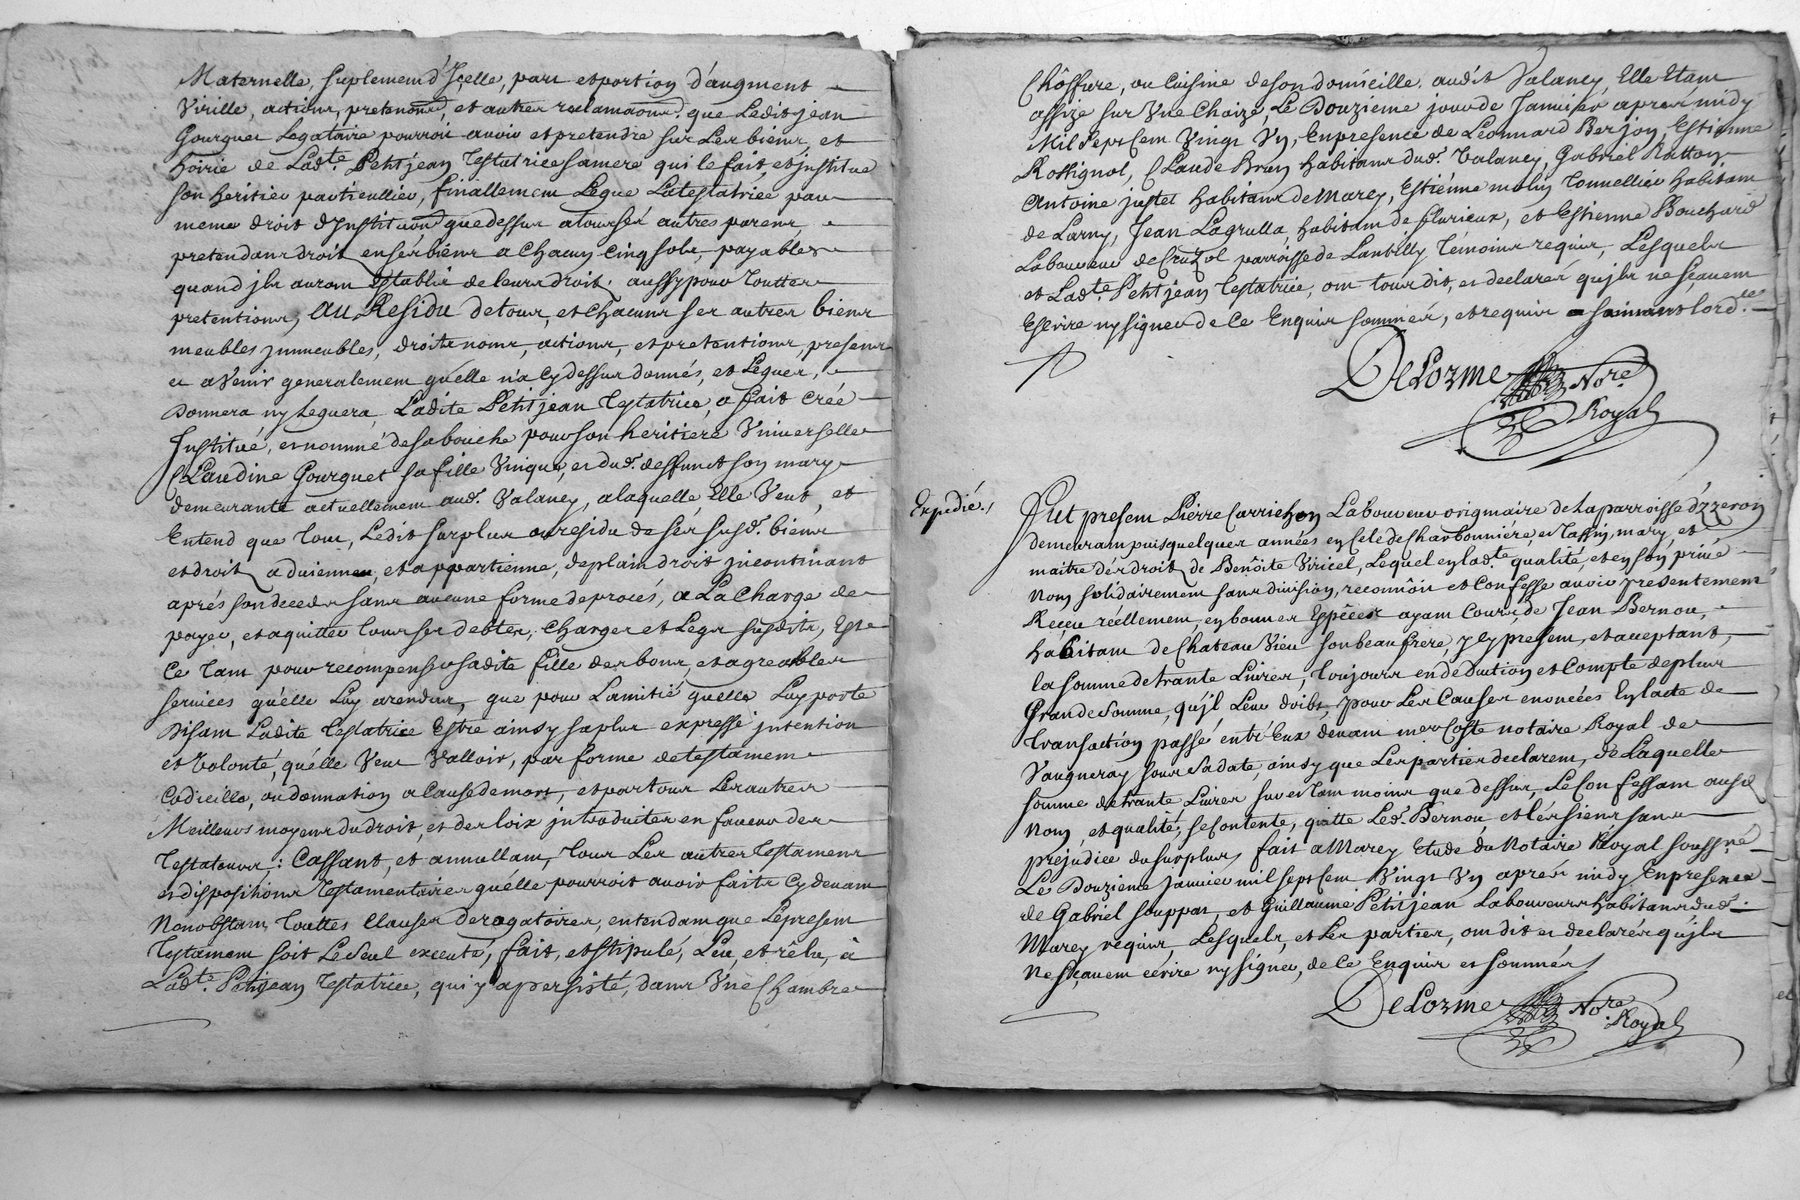 Maternelle, suplement d'Jcelle, part et portion d'augment
Virille, actions, pretentions, et autres reclamaons. que Ledit jean
Gourguet Legataire pourroit avoir et pretendre sur Les biens, et
hoirie de Ladte. Petitjean Testatrice samere qui le fait, et justitue
son heritier particullier, finallement Legue Latestatrice par
meme droit d'Jnstitution que dessus atous ses autres parens,
pretendans droit en ses biens a chacun cinq sols, payables
quand jls auront Establis de leurs droit. aussy pour touttes
pretentions, AU Residu detous, et chacuns ses autres biens
meubles jmmeubles, droits noms, actions, et pretentions, presens
et avenir generalement qu'elle n'a cy dessus donnés, et Legués,
Donnera ny Leguera, Ladite Petitjean Testatrice, a fait créé
Jnstitué, et nommé de sa bouche pour son heritiere Universelle
Claudine Gourguet sa fille Unique, et dud. deffunct son mary
demeurante actuellement aud. Valancy, alaquelle Elle Veut, et
Entend que tout, Ledit surplus ou residu de ses susd. biens
et droits adviennent, et appartienne, deplain droit jncontinant
aprés son decedz sans aucune forme deprocés, a La Charge de
payer, et aquitter tous ses debtes, charges et Legs susdits, Est
Ce tant pour recompenser sadite fille des bons, et agreables
services qu'elle Luy arendus, que pour L'amitié qu'elle Luy porte
Disant Ladite Testatrice Estre ainsy saplus expresse jntention
et Volonté, qu'elle Veut Valloir, par forme detestament
Codicille, ou donnation a Cause de mort, et par tous Les autres
Meilleurs moyens du droit, et des loix jntroduites en faveur des
Testateurs: Cassant, et annullant, tous Les autres Testaments
et dispositions Testamentaires qu'elle pourroit avoir faits cy devant
Nonobstant Touttes Clauses derogatoires, entendant que Lepresent
Testament soit Le seul executé, fait, et stipulé, Leu, et rêlu, à
Ladte. Petitjean Testatrice, qui y apersisté, dans Une Chambre
Chôffure, ou Cuisine de son domicille, audit Valancy, Elle Etant
assize sur Une Chaize, Le Douzieme jour de Janvier apres midy
Mil Sept Cent Vingt Un, En presence de Leonnard Berjon, Estienne
Rossignol, Claude Brun habitans dud. Valancy, Gabriel Ratton
Antoine justet habitans de Marcy, Estienne molin Tonnellier habitant
de Larny, Jean Lagrulla habitant de flurieux, et Estienne Bouchard
Laboureur de Cruzol parroisse de Lantilly Témoins requis, Lesquels
et Ladte. Petitjean Testatrice, ont tous dit, et declarés qujls ne sçavent
Escrire ny signer de Ce Enquis sommés, et requis suivant lord.ce
DeLorme Nore.
Royal
Expedié./
Fut present Pierre Carrichon Laboureur originaire de La parroisse d'yzeron
demeurant puis quelques années en Cele de Charbonniére, et Tassin, mary, et
maitre des droits de Benôite Viricel, Lequel en Ladte. qualité, et en son privé
Nom solidairement sans division, reconnôit et Confesse avoir presentement
Reçeu réellement, en bonnes Espéces ayant Cours, de Jean Bernou,
habitant de Chateau Vieu son beau frere, y cy present, et acceptant,
la somme de trante Livres, Toujours en deduction et Compte deplus
Grande Somme, qu'jl Leur doibt, pour Les Causes enoncées En lacte de
Transaction passé entr'Eux devant me Coste notaire Royal de
Vaugneray sous sadate, ainsy que Les parties declarent, de Laquelle
somme de trante Livres sur et tant moins que dessus, Le Confessant ausd.
Nom, et qualité, se Contente, quitte Led. Bernou, et les siens sans
prejudice du surplus, fait a Marcy Etude du Notaire Royal soussne.
Le Douzieme janvier mil sept cent Vingt Un aprés midy En presence
de Gabriel Souppat, et Guillaume Petitjean Laboureurs habitans dud.
Marcy requis Lesquels, et Les parties, ont dit et declarés qujls
Ne sçavent écrire ny signer, de Cé Enquis et sommés /
DeLorme Nore.
Royal